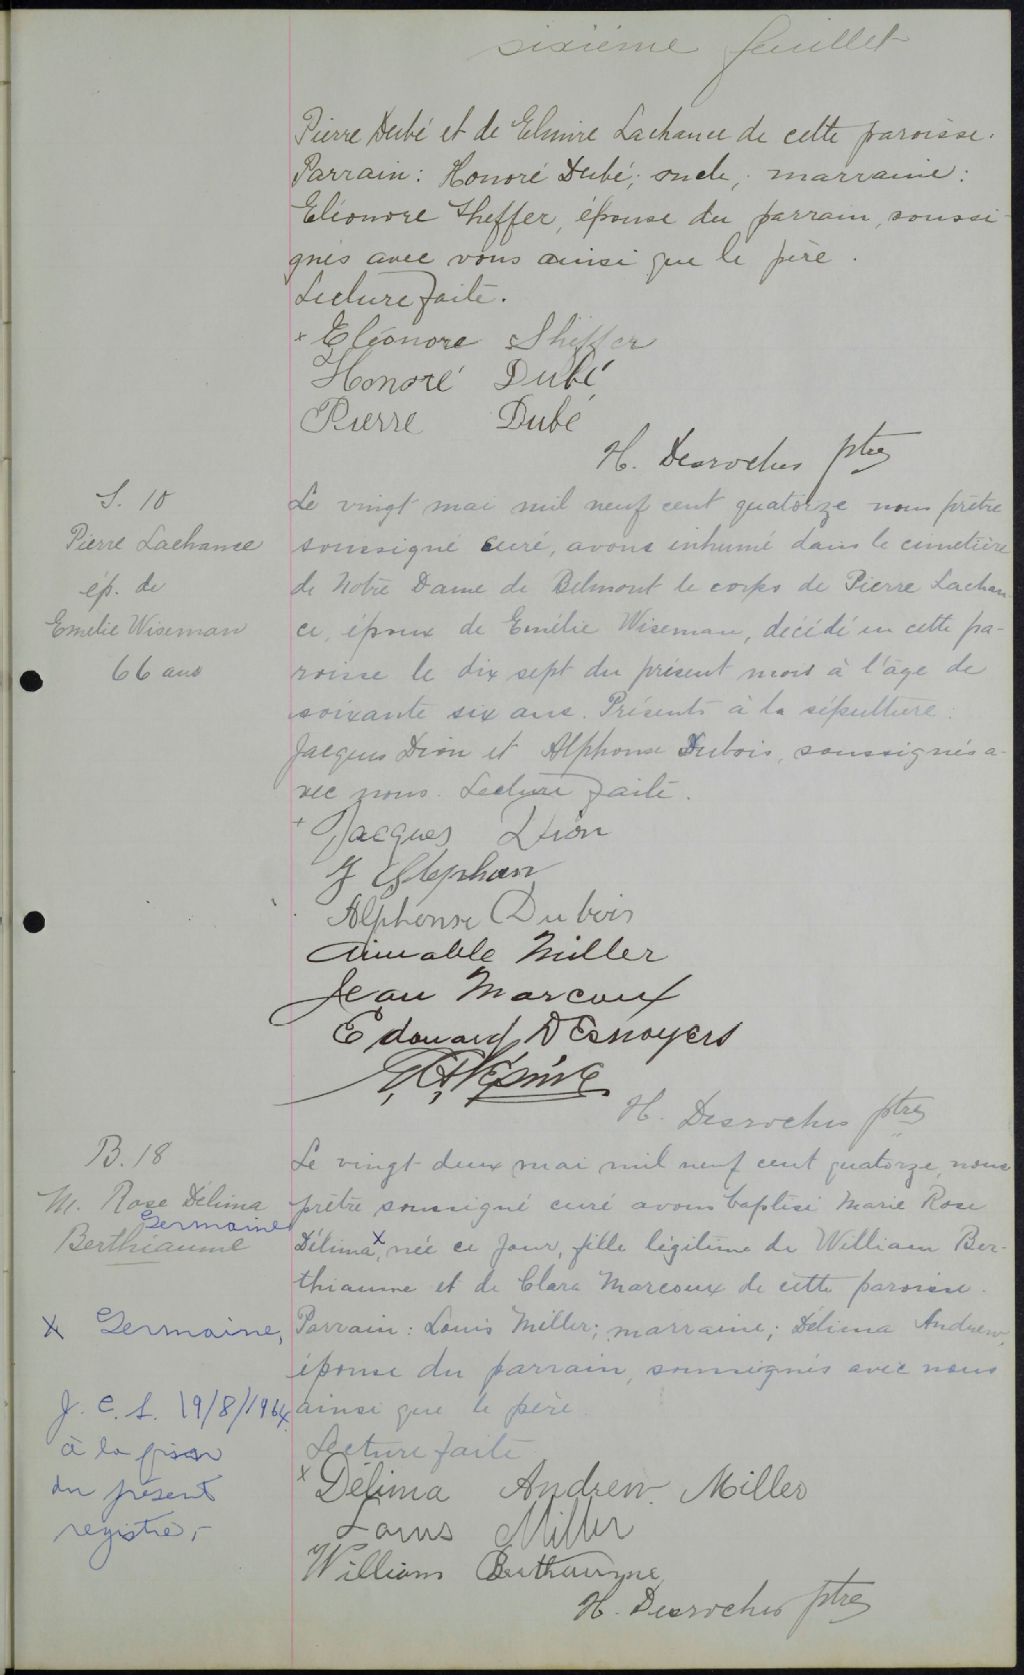 sixième feuillet
Pierre Dubé et de Elmire Lachance de cette paroisse.
Parrain: Honoré Dubé; oncle; marraine:
Eléonore Sheffer, épouse du parrain, soussi-
gnés avec vous ainsi que le père.
Lecture faite.
x Eléonore Sheffer
Honoré Dubé
Pierre Dubé
H. Desroches ptre
S. 10
Pierre Lachance
ép. de
Emelie Wiseman
66 ans
Le vingt mai mil neuf cent quatorze nous prêtre
soussigné curé, avons inhumé dans le cimetière
de Notre Dame de Belmont le corps de Pierre Lachan-
ce, époux de Emélie Wiseman, décédé en cette pa-
roisse le dix sept du présent mois à l'âge de
soixante six ans. Présents à la sépulture:
Jacques Dion et Alphonse Dubois, soussignés a-
vec nous. Lecture faite.
+ Jacques Dion
J Stephan
Alphonse Dubois
Aimable Miller
Jean Marcoux
Edouard DEsnoyers
Lépine
H. Desroches ptre
B. 18
M. Rose Délima
Germaine
Berthiaume
x Germaine,
J. C. S. 19/8/1964
à la fin
du présent
registre,-
Le vingt-deux mai mil neuf cent quatorze, nous
prêtre soussigné curé avons baptisé Marie Rose
Délima x, née ce jour, fille légitime de William Ber-
thiaume et de Clara Marcoux de cette paroisse.
Parrain: Louis Miller; marraine; Délima Andrew,
épouse du parrain, soussignés avec nous
ainsi que le père.
Lecture faite
x Délima Andrew. Miller
Louis Miller
William Berthiaume
H. Desroches ptre